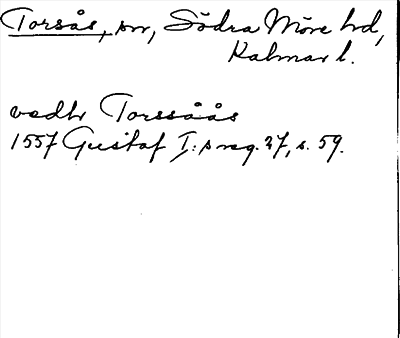 Torsås, sn, Södra Möre hd,
Kalmar l.
vedh Torssåås
1557 Gustaf I:s reg. 27, s. 59.